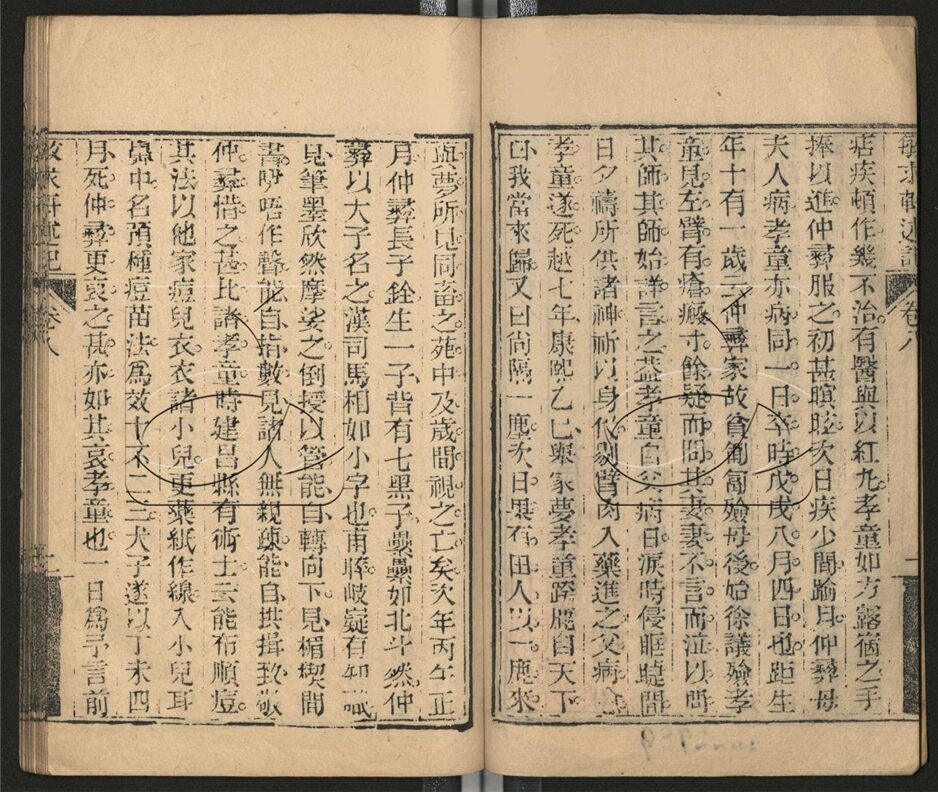 敬求軒述記 卷八
痁疾頓作幾不治有醫與以紅丸孝童如方露宿之手
捧以進仲彛服之初甚瞑眩次日疾少間踰月仲彛母
夫人病孝童亦病同一日卒時戊戌八月四日也距生
年十有一歲云仲彛家故貧匍匐殮母後始徐議殮孝
童見左臂有瘡瘢寸餘疑而問其妻妻不言而泣以問
其師其師始詳言之蓋孝童自父病日淚時侵眶曉間
日夕禱所供諸神祈以身代剔臂肉入藥進之父病
孝童遂死越七年康熙乙巳舉家夢孝童躋鹿自天下
曰我當來歸又曰尚隔一塵次日果有田人以一鹿來
與夢所見同畜之苑中及歲間視之亡矣次年丙午正
月仲彛長子銓生一子背有七黑子纍纍如北斗然仲
彛以犬子名之漢司馬相如小字也甫晬岐嶷有知識
見筆墨欣然摩娑之倒授以管能自轉向下見楣楔間
書呀唔作聲能自指數見諸人無親疎能自拱揖致敬
仲彛惜之甚比諸孝童時建昌縣有術士云能布順痘
其法以他家痘兒衣衣諸小兒更藥紙作線入小兒耳
鼻中名預種痘苗法爲效十不二三犬子遂以丁未四
月死仲彛更哀之甚亦如其哀孝童也一日爲予言前
求軒述記 卷八